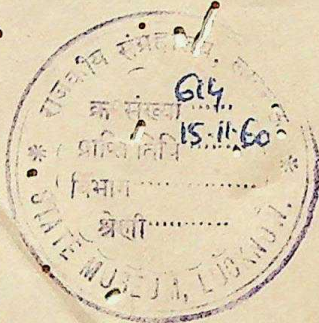 राजकीय संग्रहालय,
क्र॰ संख्या 614
प्राप्ति तिथि 15.11.60
विभाग
श्रेणी
STATE MUSEUM, LUCKNOW.